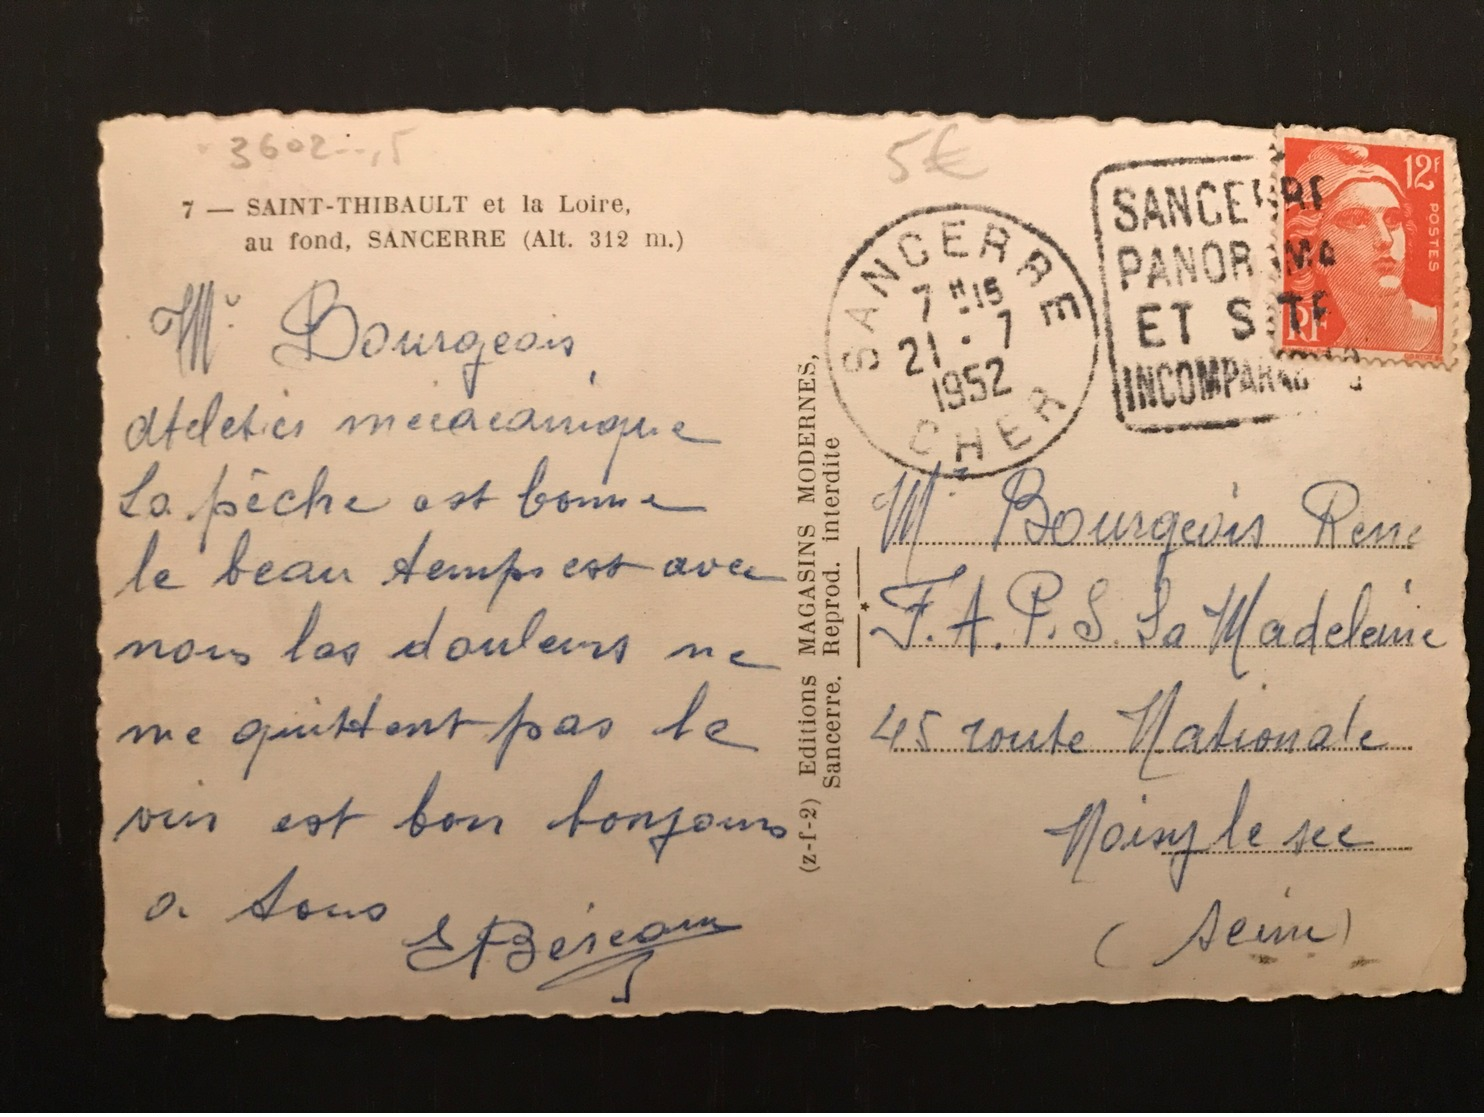 3602--,5
5€
7 — SAINT-THIBAULT et la Loire,
au fond, SANCERRE (Alt. 312 m.)
Mr Bourgeois
ateletier mecacanique
La pêche est bonne
le beau temps est avec
nous les douleurs ne
me quittent pas le
vin est bon bonjours
a tous
(z-f-2) Editions MAGASINS MODERNES,
Sancerre. Reprod. interdite
SANCERRE
7 H 15
21 - 7
1952
CHER
SANCERRE
PANORAMA
ET SITE
INCOMPARABLES
12F
POSTES
RF
Mr Bourgeois Rene
F.A.P.S. La Madeleine
45 route Nationale
Noisy le sec
(seine)